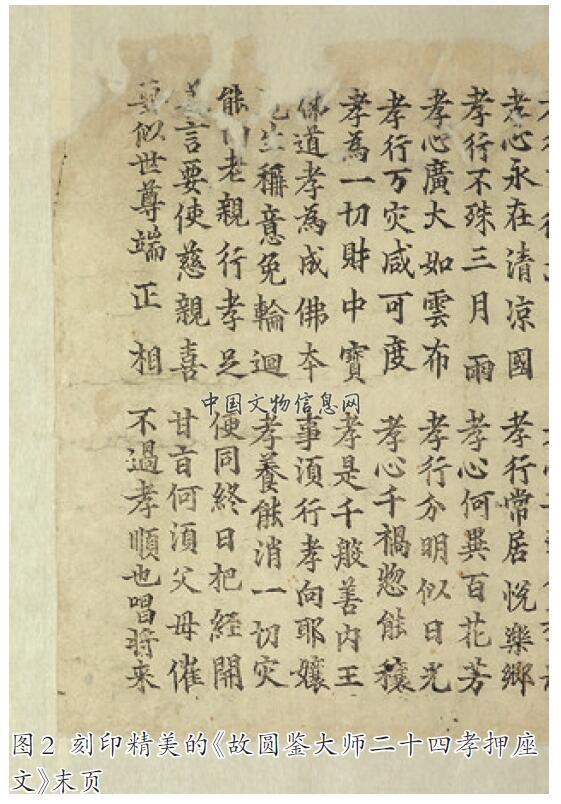 孝心永在清凉國 孝行常居悅樂鄉
孝行不殊三月雨 孝心何異百花芳
孝心廣大如雲布 孝行分明似日光
孝行万灾咸可度 孝心千禍惣能穰
孝為一切財中寶 孝是千般善内王
佛道孝為成佛夲 事須行孝向耶孃
生稱意免輪迴 孝養能消一切灾
能向老親行孝足 便同終日把經開
言要使慈親喜 甘旨何須父母催
要似世尊端正相 不過孝順也唱將来
中国文物信息网
图2 刻印精美的《故圆鉴大师二十四孝押座
文》末页